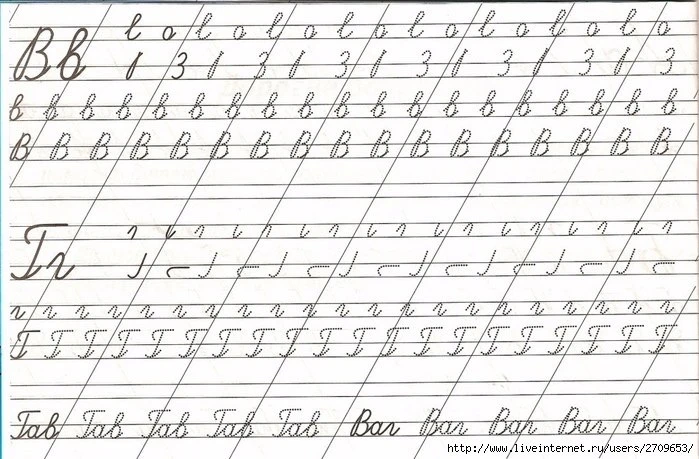 Вв
в в в в в в в в в в в в в в в в в в в
В В В В В В В В В В В В В В В В В
Гг
г г г г г г г г г г г г г г г г г г г г г г г
Г Г Г Г Г Г Г Г Г Г Г Г Г Г Г Г Г Г Г Г
Гав Гав Гав Гав Гав Ваг Ваг Ваг Ваг Ваг
http://www.liveinternet.ru/users/2709653/